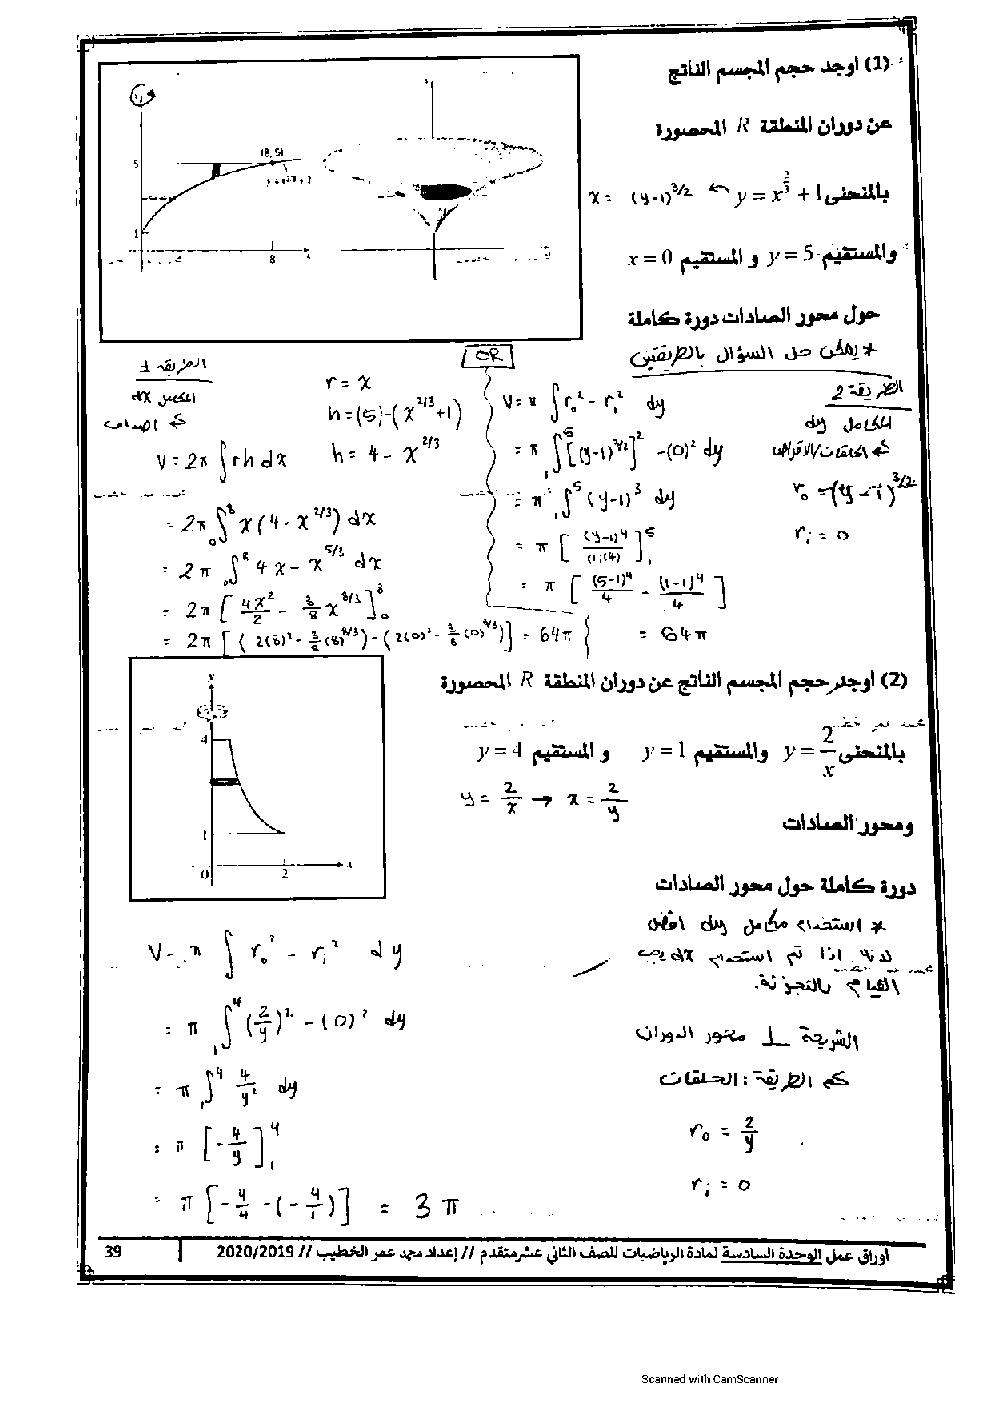 (1) أوجد حجم المجسم الناتج
عن دوران المنطقة R المحصورة
بالمنحنى y = x^{2/3} + 1 ← x = (y-1)^{3/2}
والمستقيم y = 5 و المستقيم x = 0
حول محور الصادات دورة كاملة
* يمكن حل السؤال بالطريقتين
(8, 5)
5
1
8
الطريقة 1
المكامل dx
r = x
h = (5) - (x^{2/3} + 1)
h = 4 - x^{2/3}
V = 2π ∫ rh dx
= 2π ₀∫⁸ x(4 - x^{2/3}) dx
= 2π ₀∫⁸ 4x - x^{5/3} dx
= 2π [ 4x²/2 - 3/8 x^{8/3} ]₀⁸
= 2π [ (2(8)² - 3/8 (8)^{8/3}) - (2(0)² - 3/8 (0)^{8/3}) ] = 64π
OR
الطريقة 2
المكامل dy
الحلقات/الأقراص
r₀ = (y-1)^{3/2}
rᵢ = 0
V = π ∫ r₀² - rᵢ² dy
= π ₁∫⁵ [(y-1)^{3/2}]² - (0)² dy
= π ₁∫⁵ (y-1)³ dy
= π [ (y-1)⁴/(1)(4) ]₁⁵
= π [ (5-1)⁴/4 - (1-1)⁴/4 ]
= 64π
(2) أوجد حجم المجسم الناتج عن دوران المنطقة R المحصورة
بالمنحنى y = 2/x والمستقيم y = 1 و المستقيم y = 4
y = 2/x → x = 2/y
ومحور الصادات
دورة كاملة حول محور الصادات
4
1
O
2
* استخدام مكامل dy أفضل
لأنه إذا تم استخدام dx يجب
القيام بالتجزئة.
الشريحة ⊥ محور الدوران
الطريقة: الحلقات
r₀ = 2/y
rᵢ = 0
V = π ∫ r₀² - rᵢ² dy
= π ₁∫⁴ (2/y)² - (0)² dy
= π ₁∫⁴ 4/y² dy
= π [ -4/y ]₁⁴
= π [ -4/4 - (-4/1) ] = 3π
أوراق عمل الوحدة السادسة لمادة الرياضيات للصف الثاني عشر متقدم // إعداد محمد عمر الخطيب // 2020/2019
39
Scanned with CamScanner